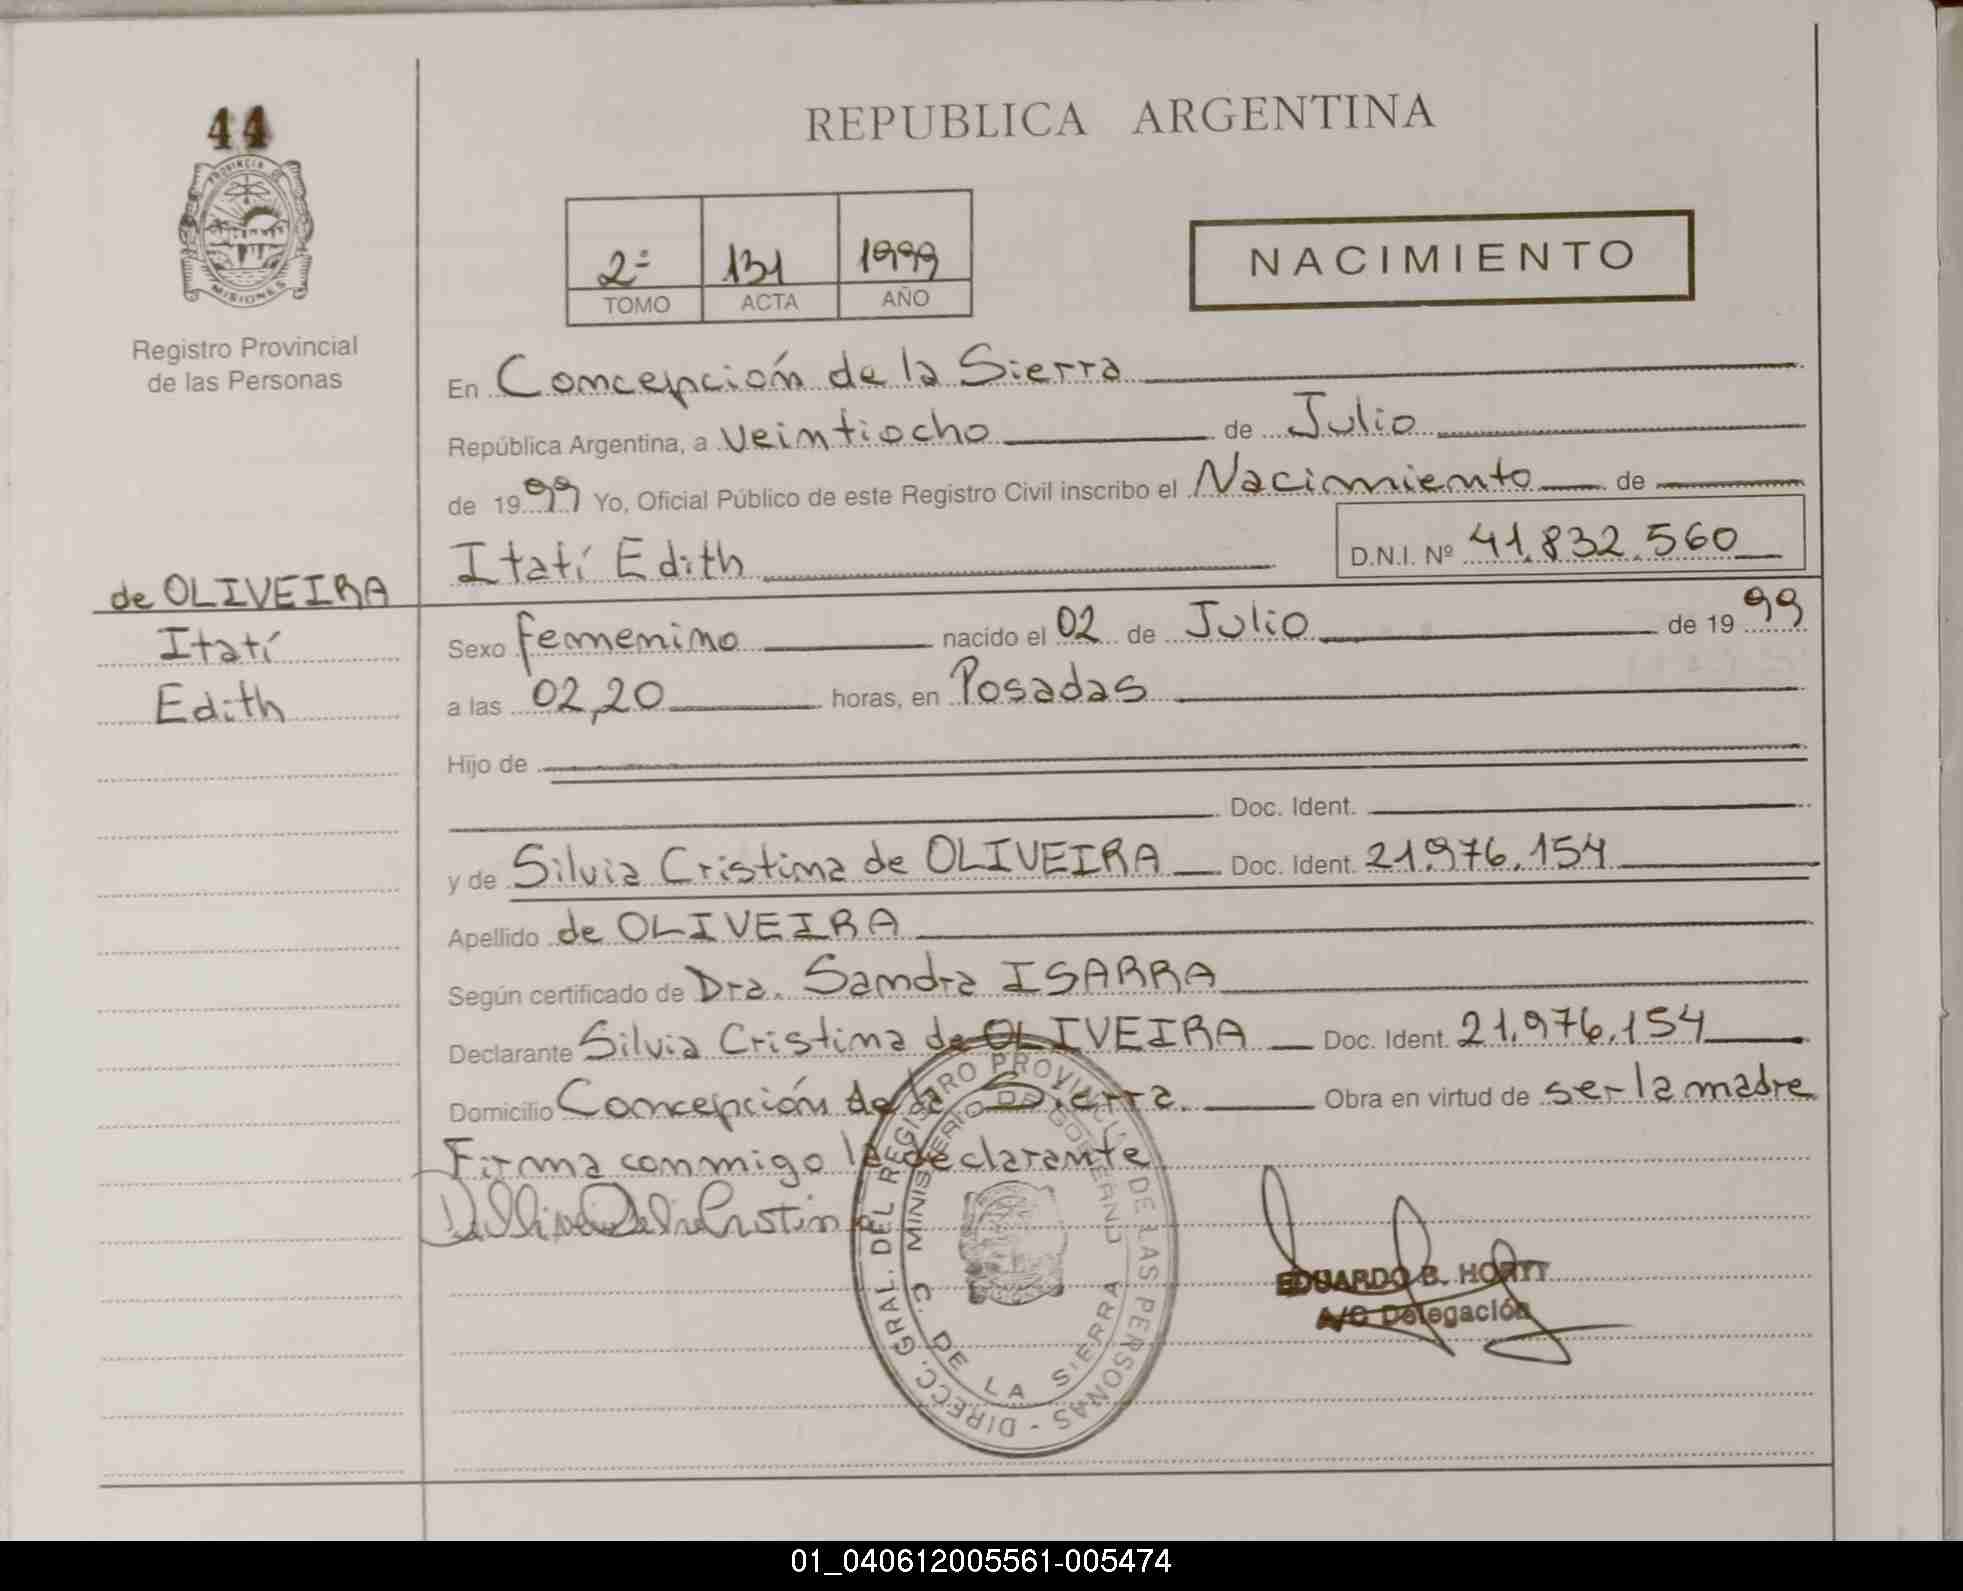 44
PROVINCIA DE
MISIONES
Registro Provincial
de las Personas
REPUBLICA ARGENTINA
2º 131 1999
TOMO ACTA AÑO
NACIMIENTO
En Concepción de la Sierra
República Argentina, a veintiocho de Julio
de 1999 Yo, Oficial Público de este Registro Civil inscribo el Nacimiento de
Itatí Edith D.N.I. Nº 41.832.560
de OLIVEIRA
Itatí
Edith
Sexo femenino nacido el 02 de Julio de 1999
a las 02,20 horas, en Posadas
Hijo de
Doc. Ident.
y de Silvia Cristina de OLIVEIRA Doc. Ident. 21.976.154
Apellido de OLIVEIRA
Según certificado de Dra. Sandra ISARRA
Declarante Silvia Cristina de OLIVEIRA Doc. Ident. 21.976.154
Domicilio Concepción de la Sierra. Obra en virtud de ser la madre
Firma conmigo la declarante
DIRECC. GRAL. DEL REGISTRO PROVINCIAL DE LAS PERSONAS -
MINISTERIO DE GOBIERNO
C. DE LA SIERRA
EDUARDO B. HORTT
A/C Delegación
01_040612005561-005474